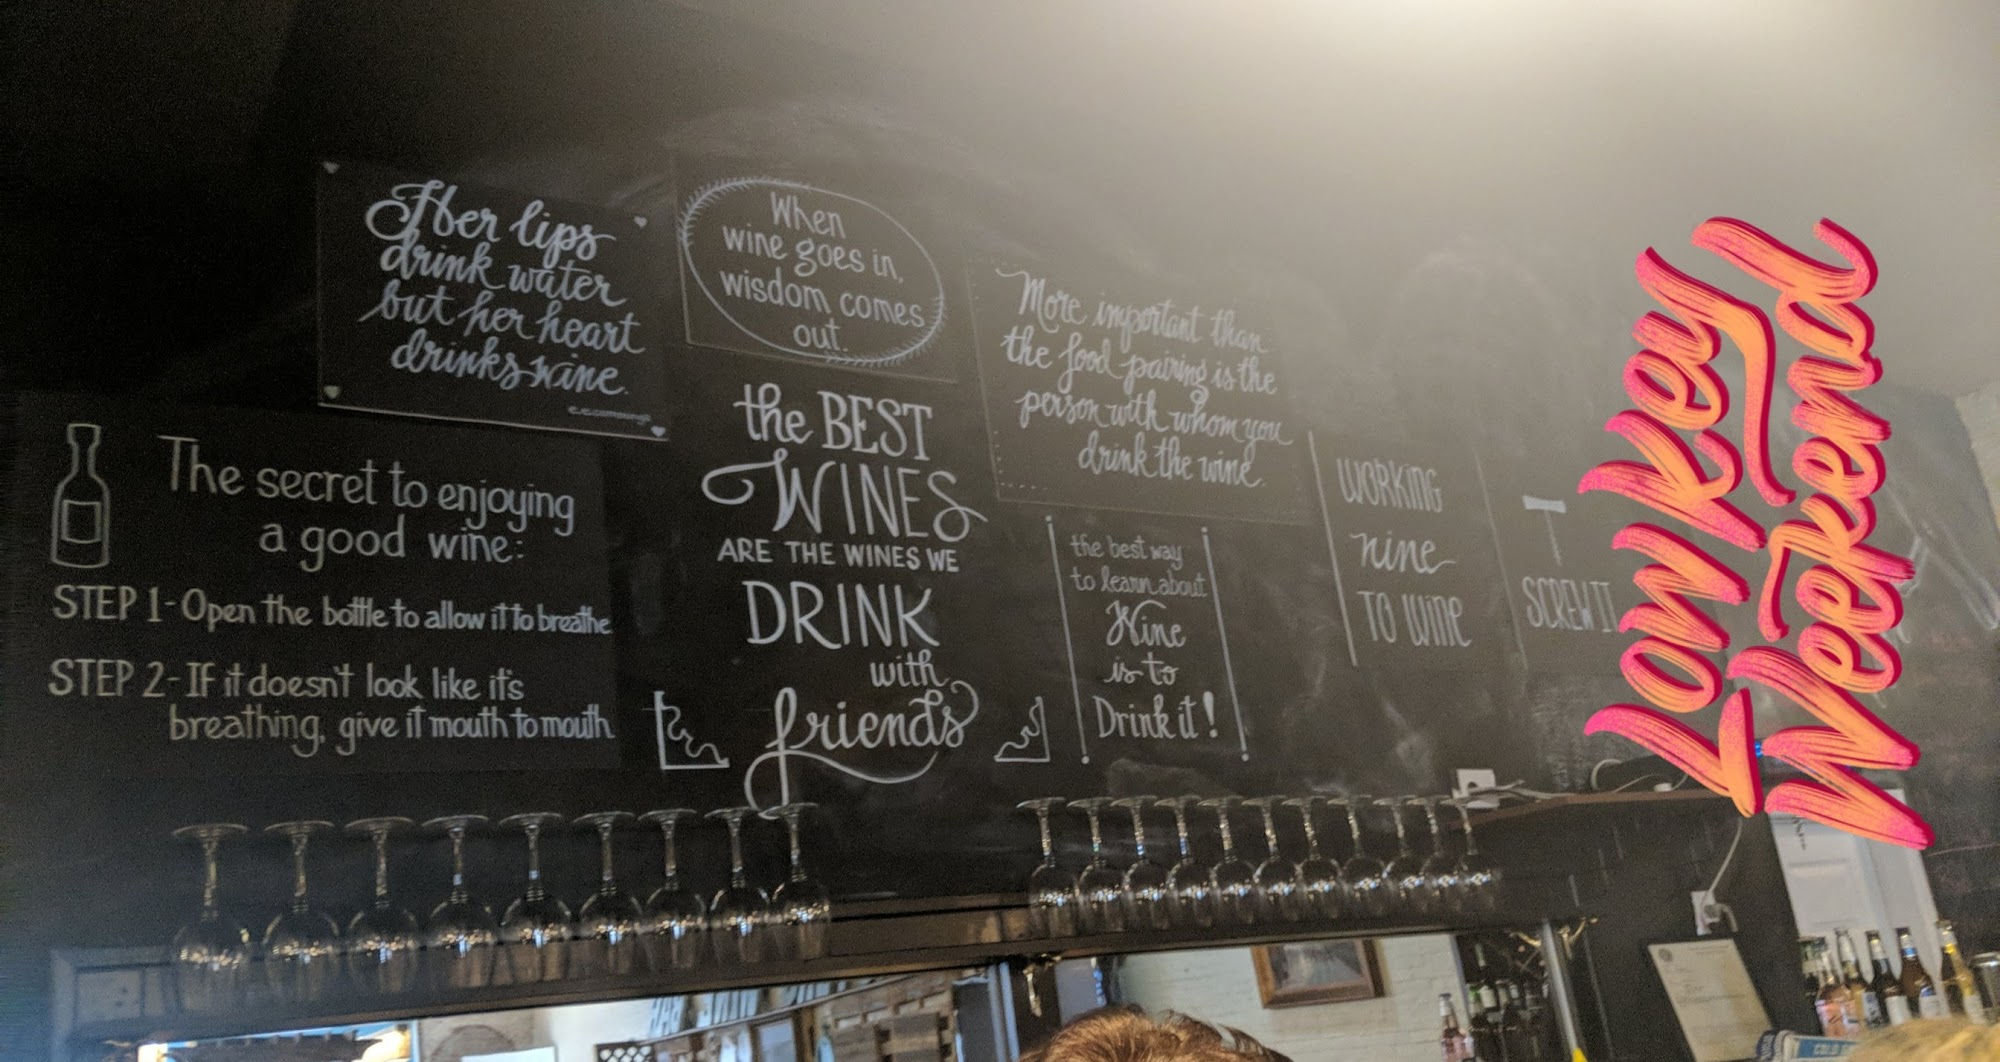 Her lips
drink water
but her heart
drinks wine.
e.e. cummings
When
wine goes in,
wisdom comes
out.
More important than
the food pairing is the
person with whom you
drink the wine.
The secret to enjoying
a good wine:
STEP 1- Open the bottle to allow it to breathe.
STEP 2- If it doesn't look like it's
breathing, give it mouth to mouth.
the BEST
WINES
ARE THE WINES WE
DRINK
with
friends
the best way
to learn about
Wine
is to
Drink it!
WORKING
nine
TO WINE
SCREW IT
Low Key
Weekend
COLD